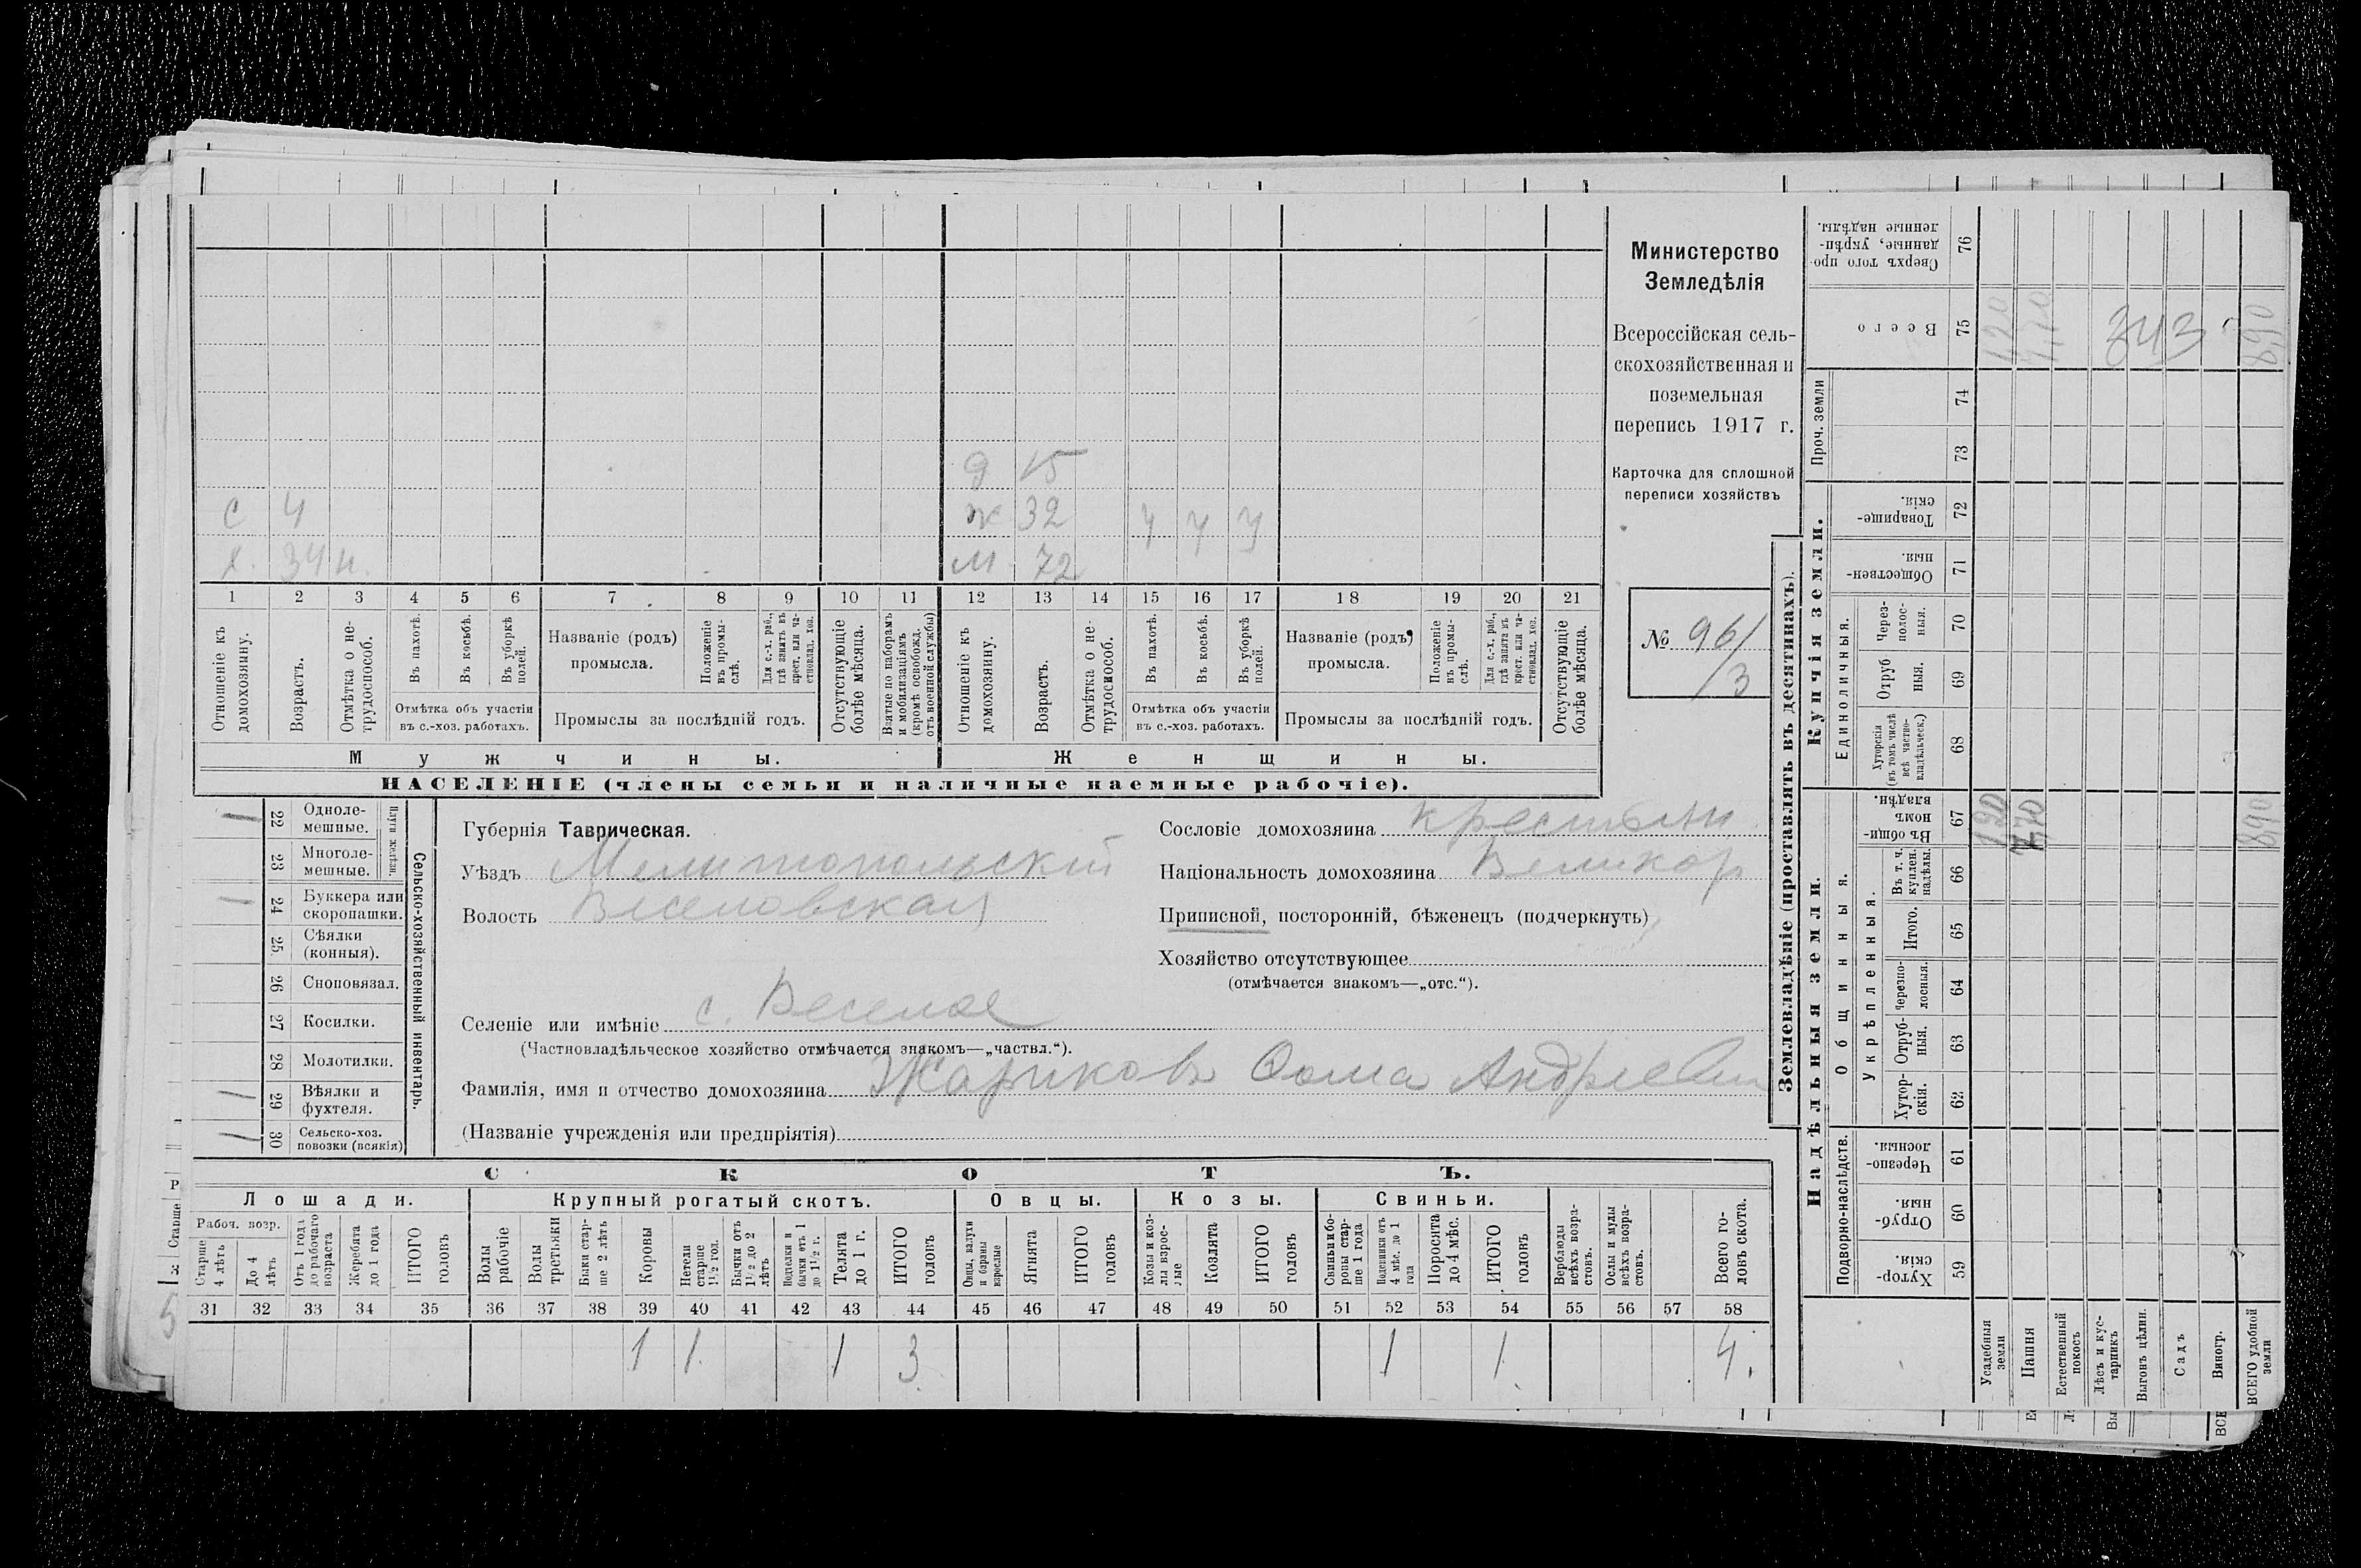 Министерство
Земледѣлія
Всероссійская сель-
скохозяйственная и
поземельная
перепись 1917 г.
Карточка для сплошной
переписи хозяйствъ
№ 961/3
д 15
С 4 ж 32 у у у
х. 34 н. м 72
1 2 3 4 5 6 7 8 9 10 11 12 13 14 15 16 17 18 19 20 21
Отношеніе къ домохозяину.
Возрастъ.
Отмѣтка о не-трудоспособ.
Въ пахотѣ.
Въ косьбѣ.
Въ уборкѣ полей.
Отмѣтка объ участіи
въ с.-хоз. работахъ.
Названіе (родъ)
промысла.
Положеніе въ промы-слѣ.
Для с.-х. раб., гдѣ занятъ въ крест. или ча-стновлад. хоз.
Промыслы за послѣдній годъ.
Отсутствующіе болѣе мѣсяца.
Взятые по наборамъ и мобилизаціямъ (кромѣ освобожд. отъ военной службы)
Отношеніе къ домохозяину.
Возрастъ.
Отмѣтка о не-трудоспособ.
Въ пахотѣ.
Въ косьбѣ.
Въ уборкѣ полей.
Отмѣтка объ участіи
въ с.-хоз. работахъ.
Названіе (родъ)
промысла.
Положеніе въ промы-слѣ.
Для с.-х. раб., гдѣ занята въ крест. или ча-стновлад. хоз.
Промыслы за послѣдній годъ.
Отсутствующіе болѣе мѣсяца.
Мужчины. Женщины.
НАСЕЛЕНІЕ (члены семьи и наличные наемные рабочіе).
Сельско-хозяйственный инвентарь.
Плуги желѣзн.
1 22 Одноле-мешные.
23 Многоле-мешные.
1 24 Буккера или скоропашки.
25. Сѣялки (конныя).
26 Сноповязал.
27 Косилки.
28 Молотилки.
1 29 Вѣялки и фухтеля.
1 30 Сельско-хоз. повозки (всякія)
Губернія Таврическая.
Уѣздъ Мелитопольскій
Волость Веселовская
Сословіе домохозяина крестьян
Національность домохозяина Великор
Приписной, посторонній, бѣженецъ (подчеркнуть)
Хозяйство отсутствующее
(отмѣчается знакомъ—„отс.“).
Селеніе или имѣніе с. Веселое
(Частновладѣльческое хозяйство отмѣчается знакомъ—„частвл.“).
Фамилія, имя и отчество домохозяина Жариковъ Фома Андреевич
(Названіе учрежденія или предпріятія)
СКОТЪ.
Лошади. Крупный рогатый скотъ. Овцы. Козы. Свиньи.
Рабоч. возр.
Старше 4 лѣтъ
До 4 лѣтъ
Отъ 1 года до рабочаго возраста
Жеребята до 1 года
ИТОГО головъ
Волы рабочіе
Волы третьяки
Быки стар-ше 2 лѣтъ
Коровы
Нетели старше 1½ год.
Бычки отъ 1½ до 2 лѣтъ
Подтелки и бычки отъ 1 до 1½ г.
Телята до 1 г.
ИТОГО головъ
Овцы, валухи и бараны взрослые
Ягнята
ИТОГО головъ
Козы и коз-лы взрос-лые
Козлята
ИТОГО головъ
Свиньи и бо-ровы стар-ше 1 года
Подсвинки отъ 4 мѣс. до 1 года
Поросята до 4 мѣс.
ИТОГО головъ
Верблюды всѣхъ возра-стовъ.
Ослы и мулы всѣхъ возра-стовъ.
Всего го-ловъ скота.
31 32 33 34 35 36 37 38 39 40 41 42 43 44 45 46 47 48 49 50 51 52 53 54 55 56 57 58
1 1. 1 3 1 1. 4.
Землевладѣніе (проставлять въ десятинахъ).
Купчія земли.
Надѣльныя земли.
Сверхъ того про-данные, укрѣп-ленные надѣлы. 76
Всего 75 1,20 7,70 343 8,90
Проч. земли 74
73
Товарище-скія. 72
Обществен-ныя. 71
Единоличныя.
Через-полос-ныя. 70
Отруб-ныя. 69
Хуторскія (въ томъ числѣ всѣ частно-владѣльческ.) 68
Общинныя.
Въ общин-номъ владѣн. 67 1,20 7,70 8,90
Укрѣпленныя.
Въ т. ч. куплен. надѣлы. 66
Итого. 65
Черезпо-лосныя. 64
Отруб-ныя. 63
Хутор-скія. 62
Подворно-наслѣдств.
Черезпо-лосныя. 61
Отруб-ныя. 60
Хутор-скія. 59
Усадебныя земли
Пашня
Естественный покосъ
Лѣсъ и кус-тарникъ
Выгонъ цѣлин.
Садъ
Виногр.
ВСЕГО удобной земли
Старше
5